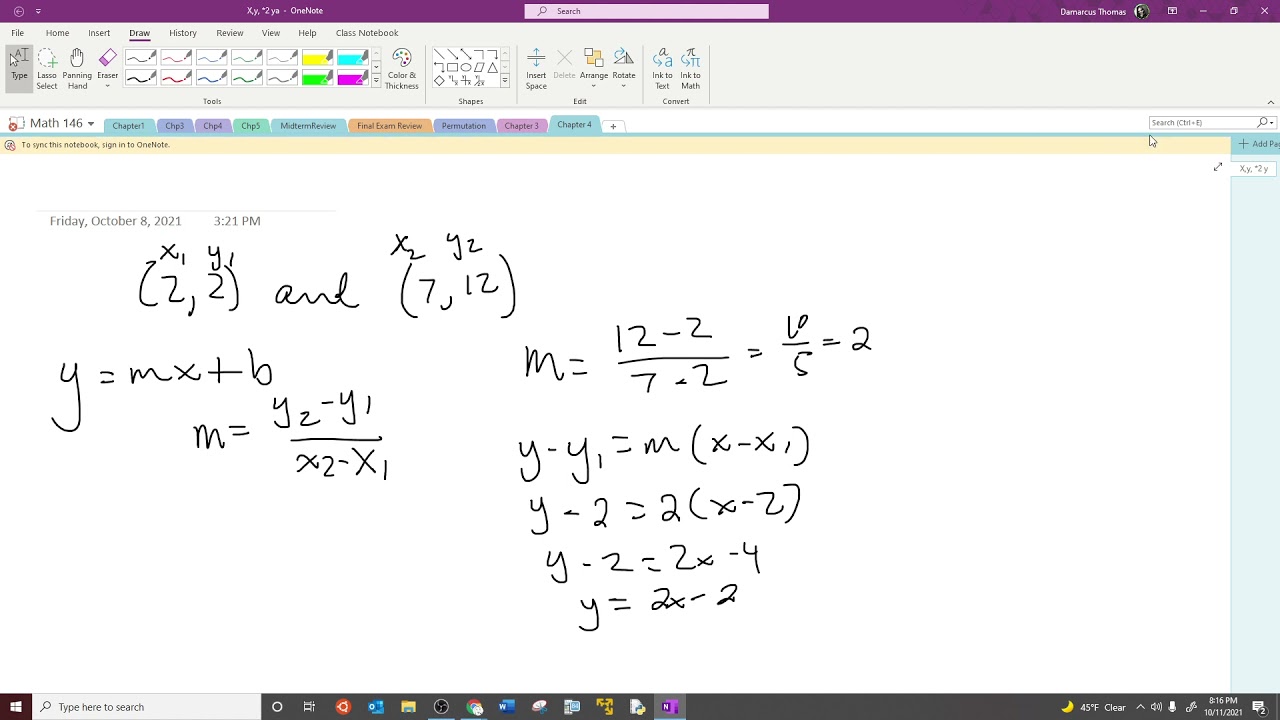 X,y, *2 ya - OneNote
Search
Damarcus Thomas
File Home Insert Draw History Review View Help Class Notebook
Type
Lasso Select
Panning Hand
Eraser
Color & Thickness
Insert Space
Delete
Arrange
Rotate
Ink to Text
Ink to Math
Tools Shapes Edit Convert
Math 146
Chapter1 Chp3 Chp4 Chp5 MidtermReview Final Exam Review Permutation Chapter 3 Chapter 4
Search (Ctrl+E)
To sync this notebook, sign in to OneNote.
Add Pag
X,y, *2 y
Friday, October 8, 2021 3:21 PM
x₁ y₁ x₂ y₂
(2, 2) and (7, 12)
y = mx+b
m = (y₂-y₁)/(x₂-x₁)
m = (12-2)/(7-2) = 10/5 = 2
y-y₁ = m(x-x₁)
y-2 = 2(x-2)
y-2 = 2x-4
y = 2x-2
Type here to search
45°F Clear
8:16 PM
10/11/2021